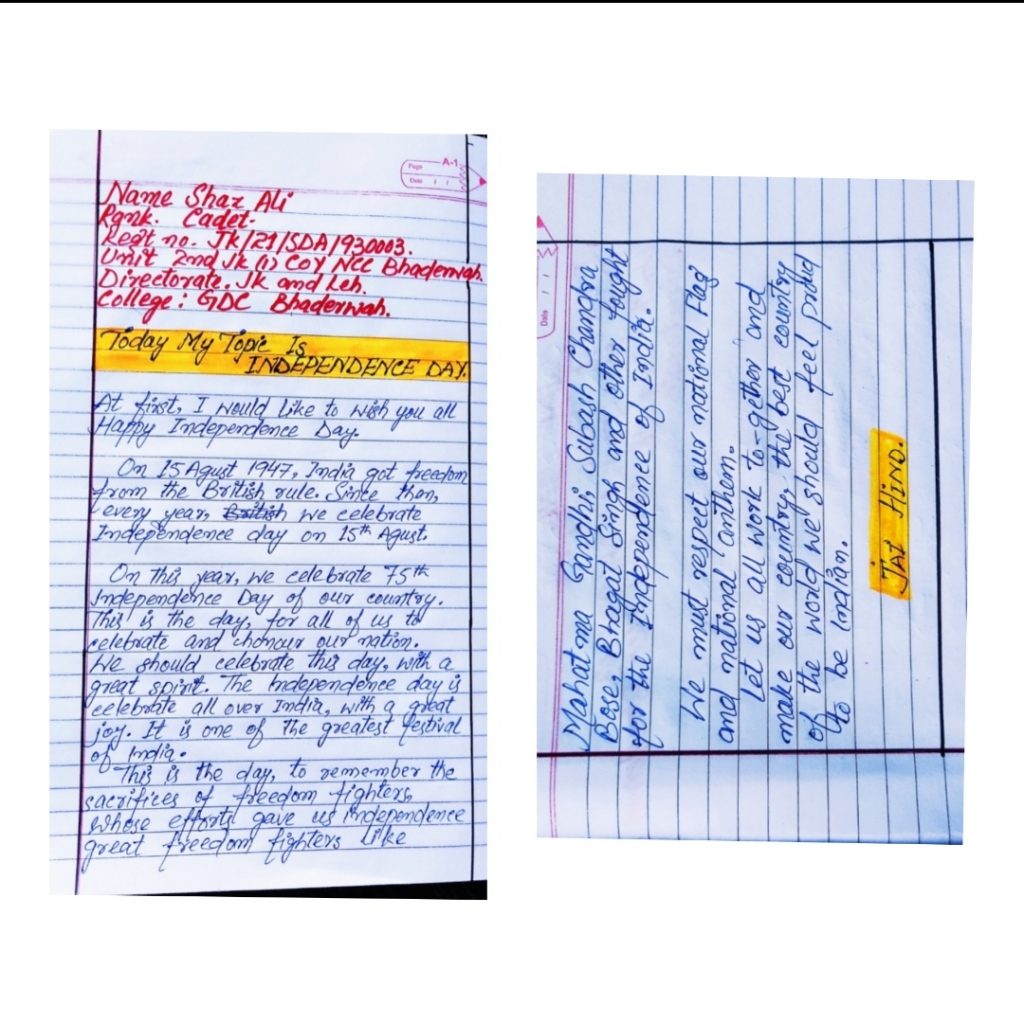 Page A-1
Date / /
Name Shaz Ali
Rank. Cadet-
Regt no. JK/21/SDA/930003.
Unit 2nd JK (1) COY NCC Bhaderwah.
Directorate. JK and Leh.
College: GDC Bhaderwah.
Today My Topic Is
INDEPENDENCE DAY.
At first, I would like to wish you all
Happy Independence Day.
On 15 Agust 1947, India got freedom
from the British rule. Since then,
every year, British we celebrate
Independence day on 15th Agust.
On this year, we celebrate 75th
Independence Day of our country.
This is the day, for all of us to
celebrate and chonour our nation.
We should celebrate this day, with a
great spirit. The Independence day is
celebrate all over India, with a great
joy. It is one of the greatest festival
of India.
This is the day, to remember the
sacrifices of freedom fighters,
whose efforts gave us independence
great freedom fighters like
Date / /
Mahatma Gandhi, Subash Chandra
Bose, Bhagat Singh and other fought
for the Independence of India.
We must respect our national Flag
and national anthem.
Let us all work to-gether and
make our country, the best country
of the world we should feel proud
to be Indian.
JAI HIND.